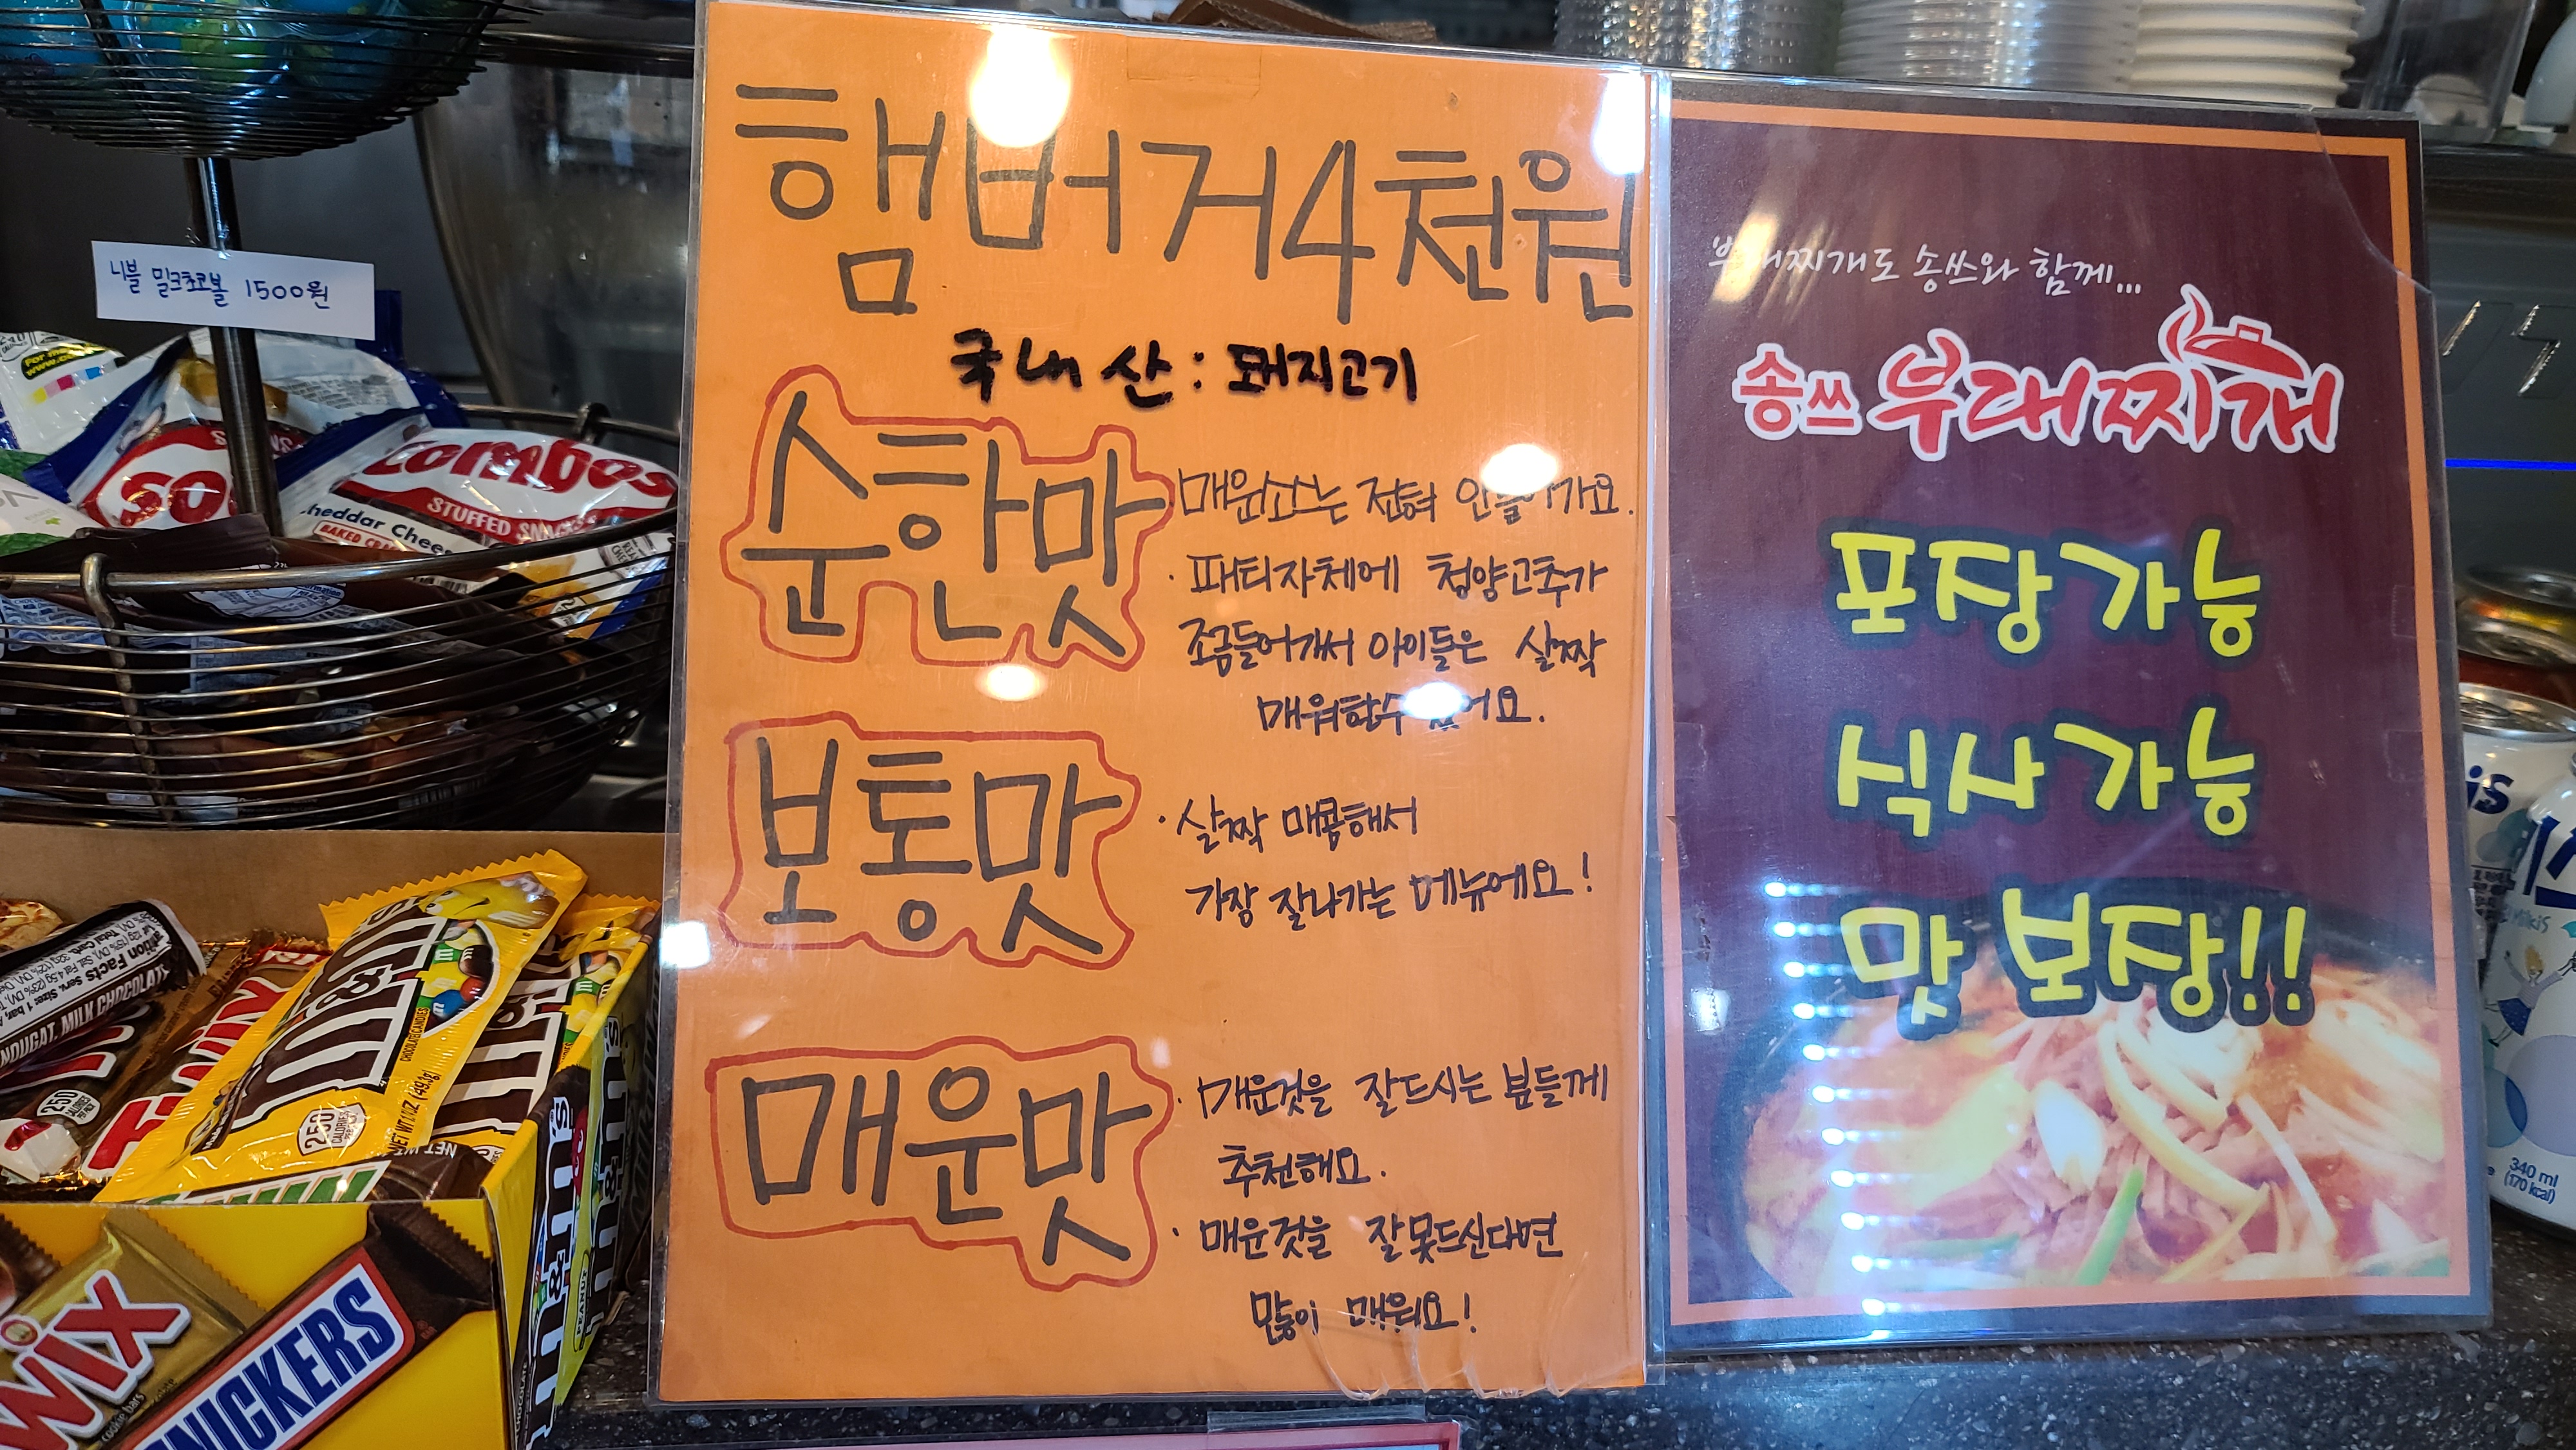 햄버거4천원
국내산 : 돼지고기
순한맛
· 매운소스는 전혀 안들어가요.
· 패티자체에 청양고추가
조금들어가서 아이들은 살짝
매워할수 있어요.
보통맛
· 살짝 매콤해서
가장 잘나가는 메뉴에요!
매운맛
· 매운것을 잘드시는 분들께
추천해요.
· 매운것을 잘못드신다면
많이 매워요!
부대찌개도 송쓰와 함께...
송쓰 부대찌개
포장가능
식사가능
맛 보장!!
니블 밀크초코볼 1500원
Combos
STUFFED SNACKS
Cheddar Cheese
NOUGAT, MILK CHOCOLATE
250 CALORIES
m&m's
CHOCOLATE CANDIES
250 CALORIES
m&m's
PEANUT
SNICKERS
cookie bars
340 ml
(170 kcal)